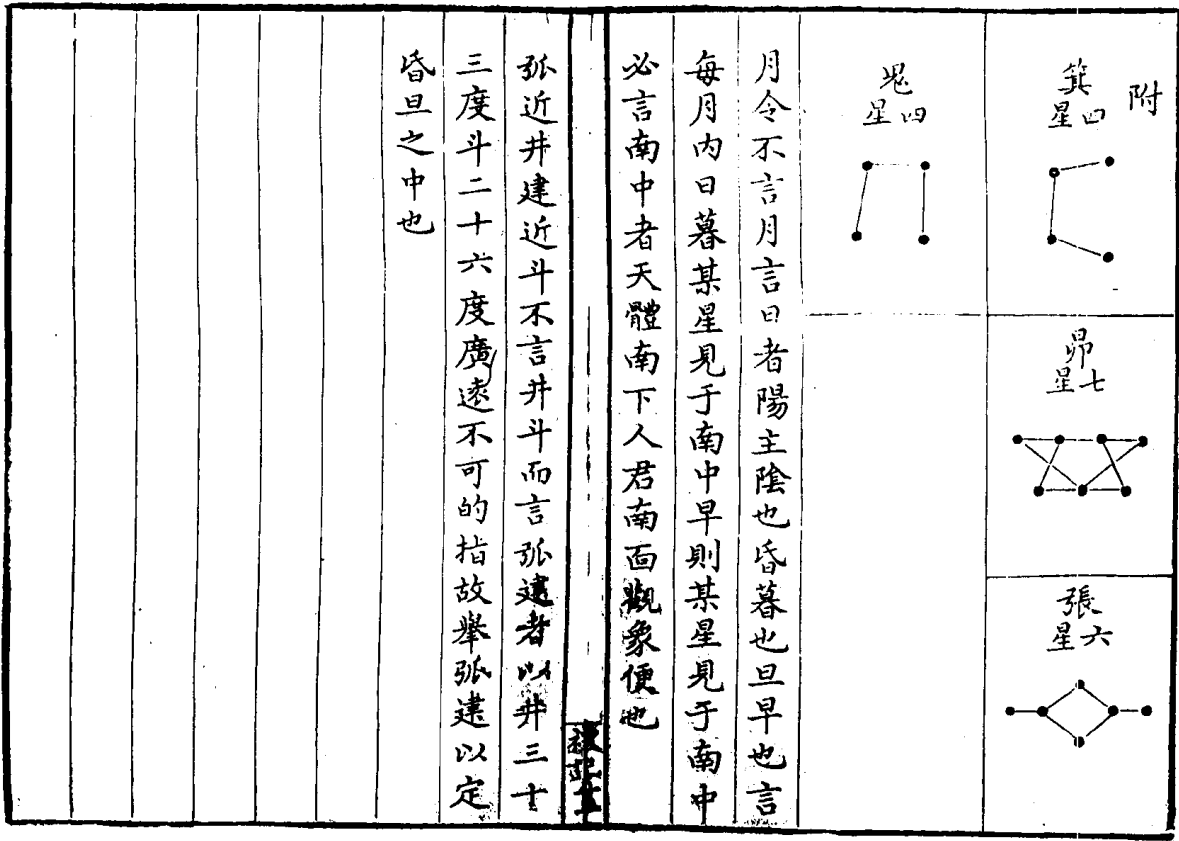 附
箕
四星
昴
七星
張
六星
鬼
四星
月令不言月言日者陽主陰也昏暮也旦早也言
每月內日暮某星見于南中早則某星見于南中
必言南中者天體南下人君南面觀象便也
弧近井建近斗不言井斗而言弧建者以井三十
三度斗二十六度廣遠不可的指故舉弧建以定
昏旦之中也